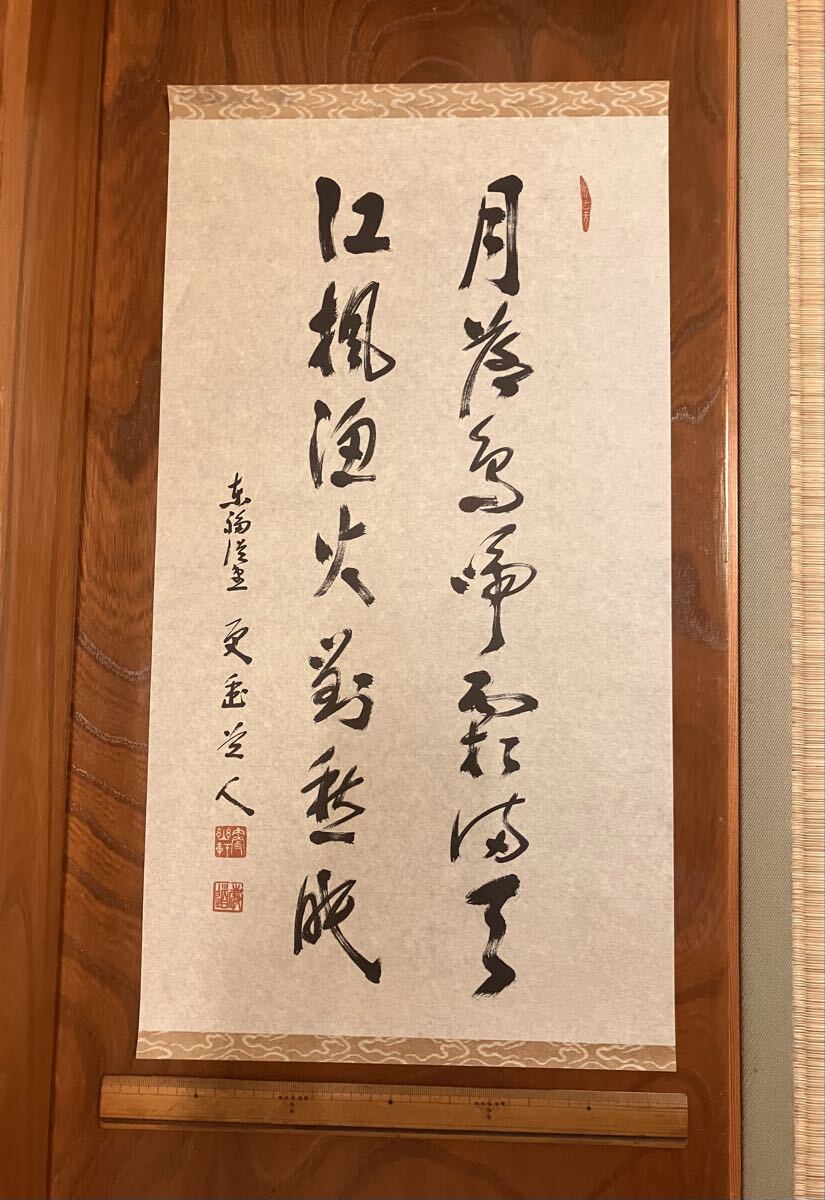 月落烏啼霜満天
江楓漁火對愁眠
東福 更幽道人